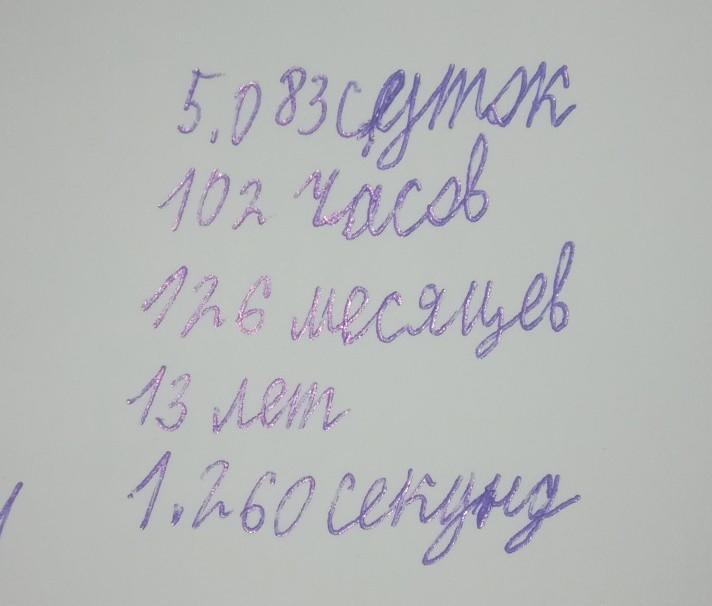 5.083 суток
102 часов
126 месяцев
13 лет
1.260 секунд